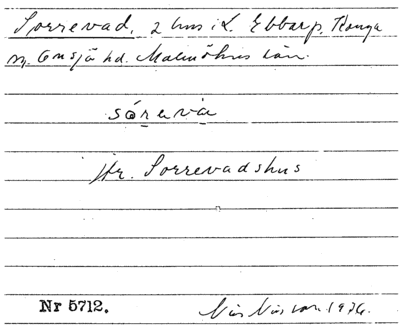 Sorrevad, 2 hus i L. Ebbarp, Konga
sn. Onsjö hd. Malmöhus län.
sóreva
Jfr. Sorrevadshus
Nr 5712. Nils Nilsson 1976.